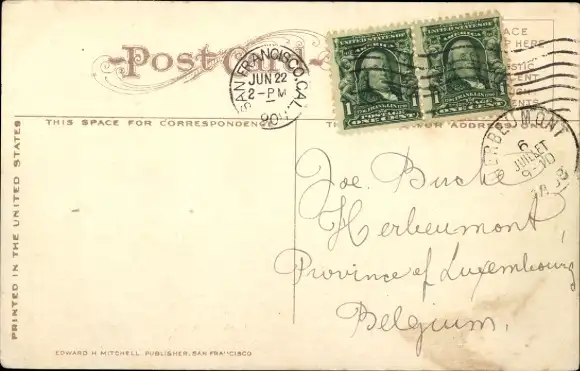 Post Card
SAN FRANCISCO, CAL.
JUN 22
2-PM
190
UNITED STATES OF AMERICA
UNITED STATES OF AMERICA
1 FRANKLIN 1
POSTAGE
ONE CENT
1 FRANKLIN 1
HERBEUMONT
6
JUILLET
9-10
THIS SPACE FOR CORRESPONDENCE
FOR ADDRESS
PRINTED IN THE UNITED STATES
Joe.
Herbeumont,
Province of Luxembourg
Belgium,
EDWARD H MITCHELL, PUBLISHER, SAN FRANCISCO